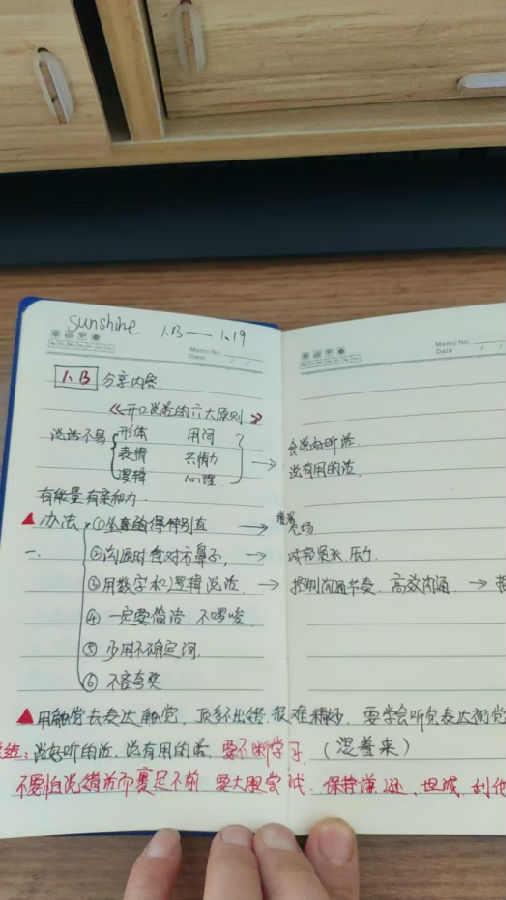 sunshine. 1.13——1.19
Memo No.
Date / /
Memo No.
Date / /
1.13 分享内容
《开口说话的六大原则》
说话不易 形体 用词
表情 共情力 → 会说好听话
逻辑 心理 说有用的话
有能量有亲和力
▲办法 ①坐直的得特别直 → 增强气场
一、 ②沟通时看对方鼻子, → 减轻紧张、压力
③用数字和逻辑说话 → 控制沟通节奏、高效沟通 →
④ 一定要简洁 不啰嗦
⑤ 少用不确定词.
⑥ 不吝夸奖
▲用触觉去表达触觉, 顶多不出错, 很难精妙. 要学会听觉表达视觉
总结:说好听的话, 说有用的话, 要不断学习 (混着来)
不要怕说错话而裹足不前 要大胆尝试. 保持谦逊、坦诚、利他